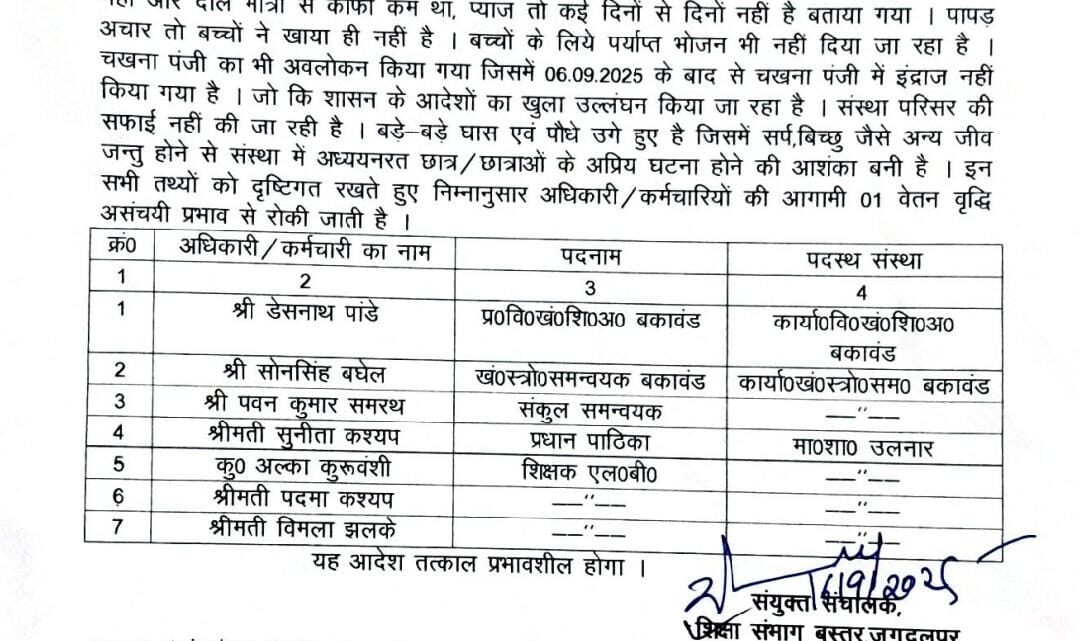 नहीं और दाल मात्रा से काफी कम था, प्याज तो कई दिनों से दिनों नहीं है बताया गया । पापड़
अचार तो बच्चों ने खाया ही नहीं है । बच्चों के लिये पर्याप्त भोजन भी नहीं दिया जा रहा है ।
चखना पंजी का भी अवलोकन किया गया जिसमें 06.09.2025 के बाद से चखना पंजी में इंद्राज नहीं
किया गया है । जो कि शासन के आदेशों का खुला उल्लंघन किया जा रहा है । संस्था परिसर की
सफाई नहीं की जा रही है । बड़े–बड़े घास एवं पौधे उगे हुए है जिसमें सर्प,बिच्छु जैसे अन्य जीव
जन्तु होने से संस्था में अध्ययनरत छात्र/छात्राओं के अप्रिय घटना होने की आशंका बनी है । इन
सभी तथ्यों को दृष्टिगत रखते हुए निम्नानुसार अधिकारी/कर्मचारियों की आगामी 01 वेतन वृद्धि
असंचयी प्रभाव से रोकी जाती है ।
क्रं0 अधिकारी/कर्मचारी का नाम पदनाम पदस्थ संस्था
1 2 3 4
1 श्री डेसनाथ पांडे प्र0वि0खं0शि0अ0 बकावंड कार्या0वि0खं0शि0अ0
बकावंड
2 श्री सोनसिंह बघेल खं0स्त्रो0समन्वयक बकावंड कार्या0खं0स्त्रो0सम0 बकावंड
3 श्री पवन कुमार समरथ संकुल समन्वयक ––"––
4 श्रीमती सुनीता कश्यप प्रधान पाठिका मा0शा0 उलनार
5 कु0 अल्का कुरूवंशी शिक्षक एल0बी0 ––"––
6 श्रीमती पदमा कश्यप ––"–– ––"––
7 श्रीमती विमला झलके ––"–– ––"––
यह आदेश तत्काल प्रभावशील होगा ।
/9/2025
संयुक्त संचालक,
शिक्षा संभाग बस्तर जगदलपुर